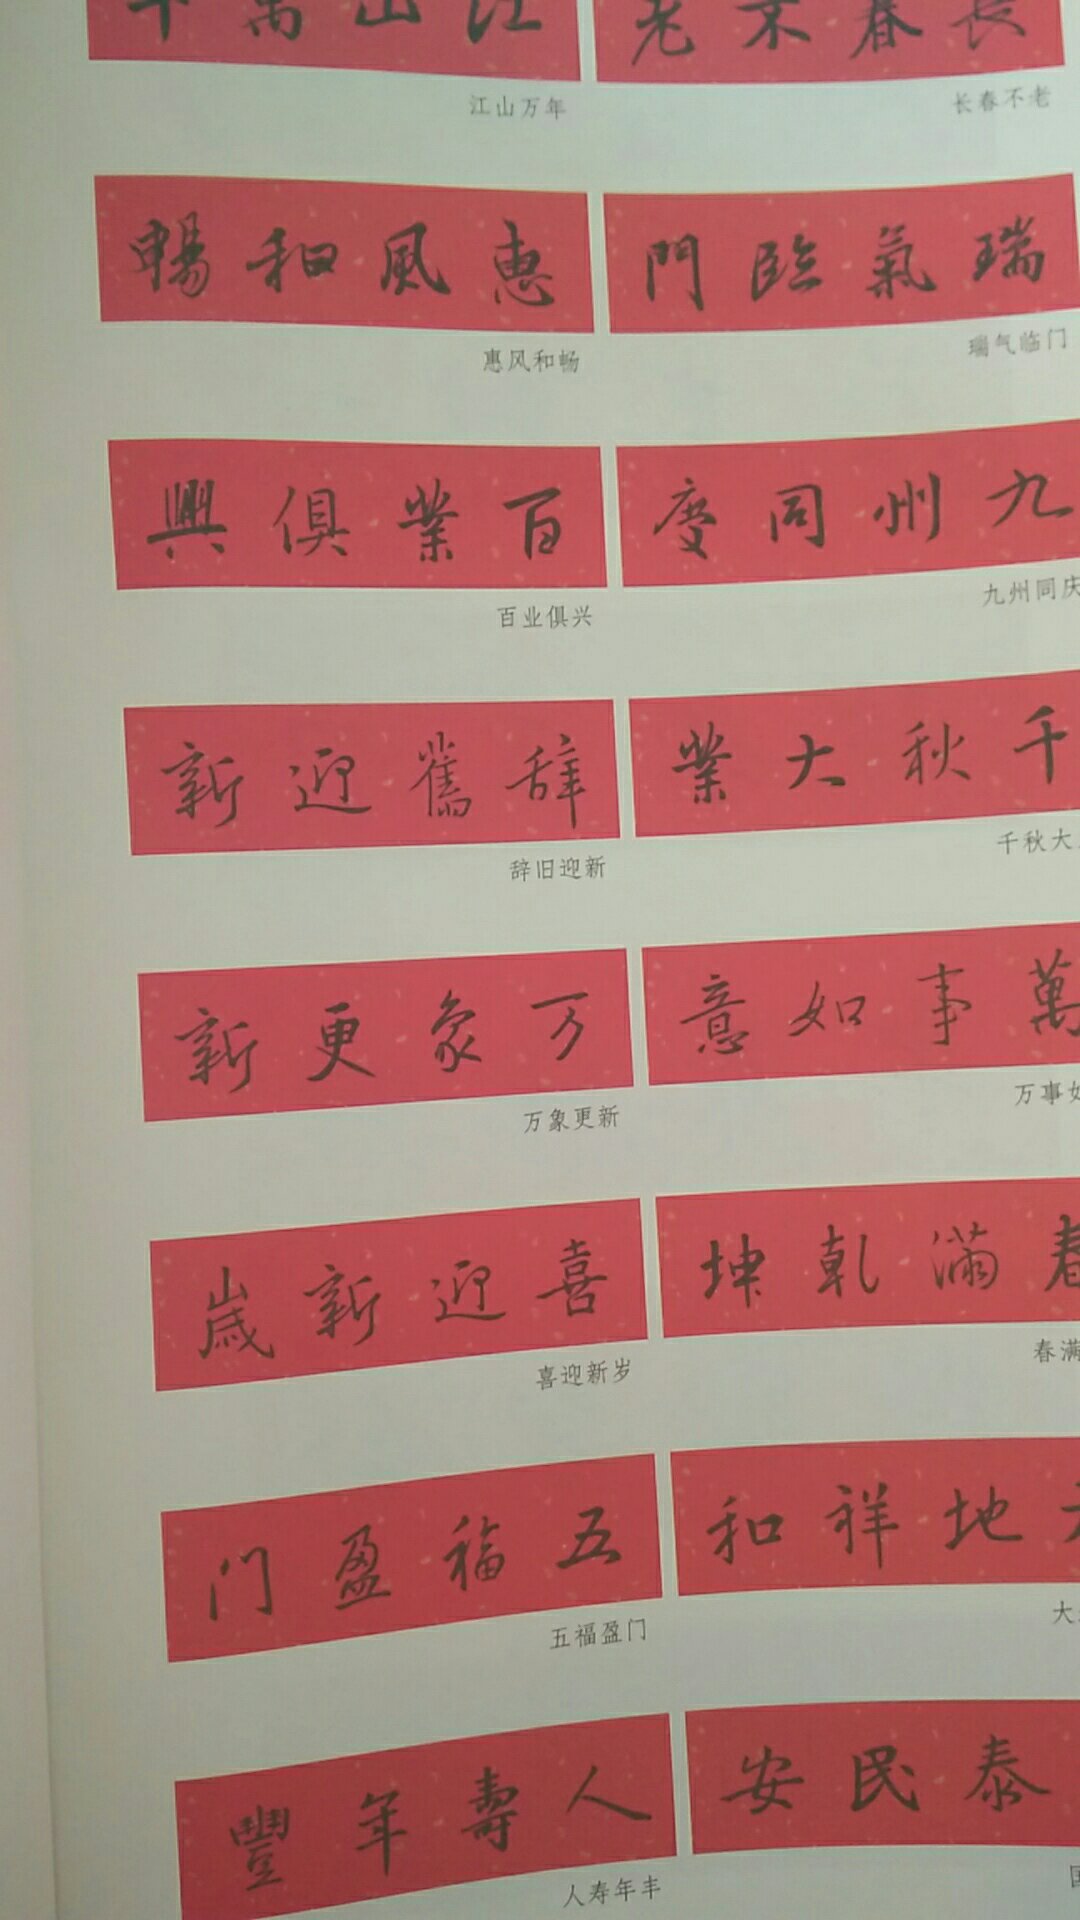 江山萬年
長春不老
江山万年
长春不老
惠風和暢
瑞氣臨門
惠风和畅
瑞气临门
百業俱興
九州同慶
百业俱兴
九州同庆
辞舊迎新
千秋大業
辞旧迎新
千秋大
万象更新
萬事如意
万象更新
万事如
喜迎新歲
春滿乾坤
喜迎新岁
春满
五福盈门
地祥和
五福盈门
大
人壽年豐
泰民安
人寿年丰